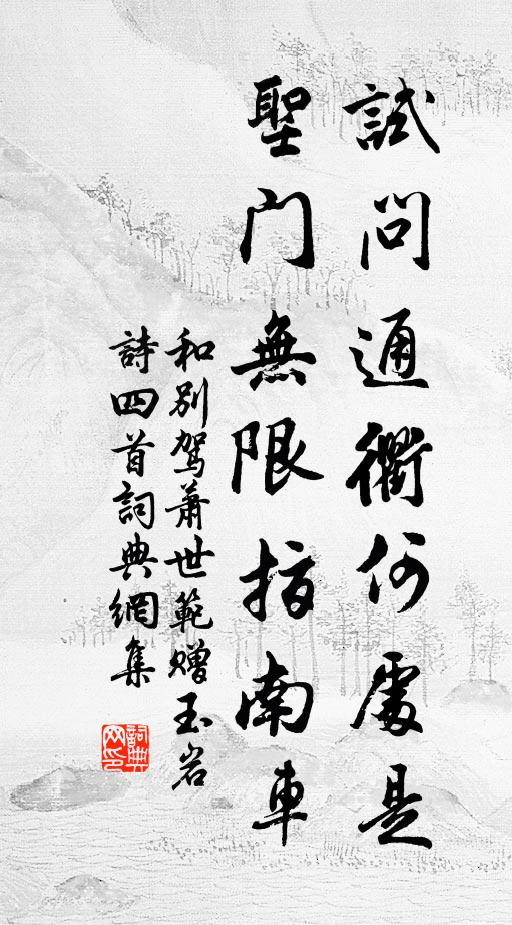 試問通衢何處是
聖门無限指南車
和別駕蕭世範赠玉岩
詩四首詞典網集
詞典网印